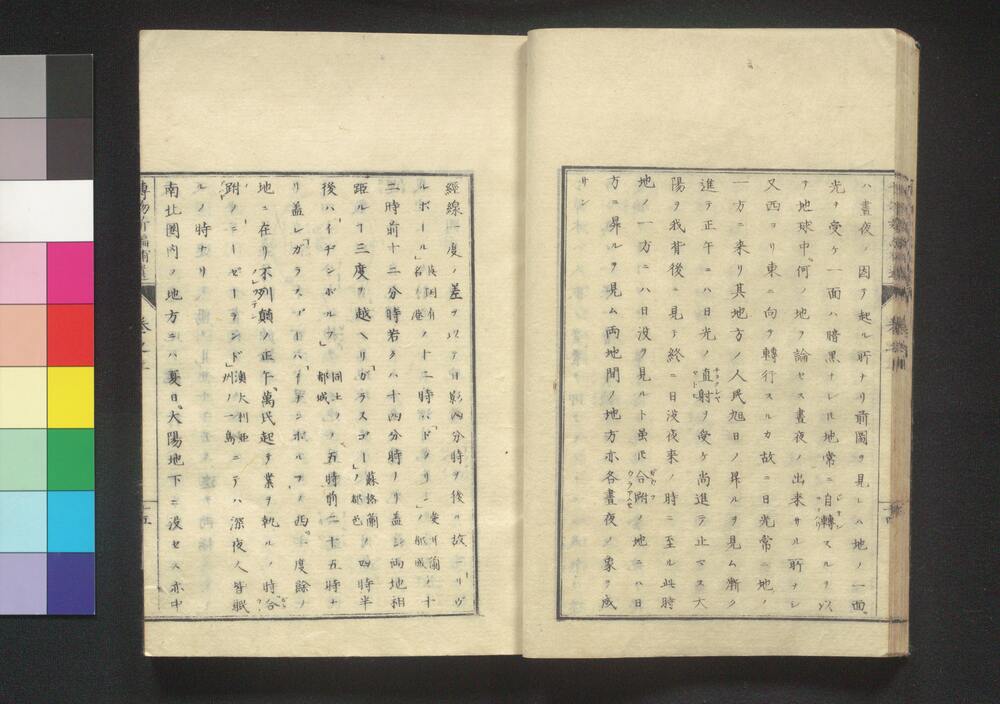 ハ晝夜ノ因テ起ル所ナリ前圖ヲ見レハ地ノ一面
光ヲ受ケ一面ハ暗黒ナレ𪜈地常ニ自轉スルヲ以
テ地球中何ノ地ヲ論セス晝夜ノ出来サル所ナシ
又西ヨリ東ニ向ヲ轉行スルカ故ニ日光常ニ地ノ
一方ニ来リ其地方ノ人民旭日ノ昇ルヲ見ム漸ク
進テ正午ニハ日光ノ直射ヲ受ケ尚進テ止マス大
陽ヲ我背後ニ見テ終ニ日没夜来ノ時ニ至ル此時
地ノ一方ニハ日没ヲ見ルト虽𪜈合朒ノ地ニハ日
方ニ昇ルヲ見ム両地間ノ地方亦各晝夜ノ象ヲ成
サン
經線一度ノ差ヲ以テ日影四分時ヲ後ル故ニリヴ
ルボール英国有名ノ港ノ十二時ハドブリン愛尓蘭ノ都城ノ十
二時前十二分時若クハ十四分時ナリ蓋シ両地相
距ル十三度ヲ越ヘリガラスゴー蘇格蘭ノ都邑ノ四時半
後ハイヂンボルフ同上ノ都城ノ五時前二十五時ナ
リ蓋レガラスゴーハイヂンボルフノ西十度餘ノ
地ニ在リ不列顛ノ正午萬民起テ業ヲ執ルノ時合
朒ノニーゼーランド澳大利亜州ノ一島ニテハ深夜人皆眠
ルノ時ナリ
南北圏内ノ地方ニハ夏日大陽地下ニ没セス亦中